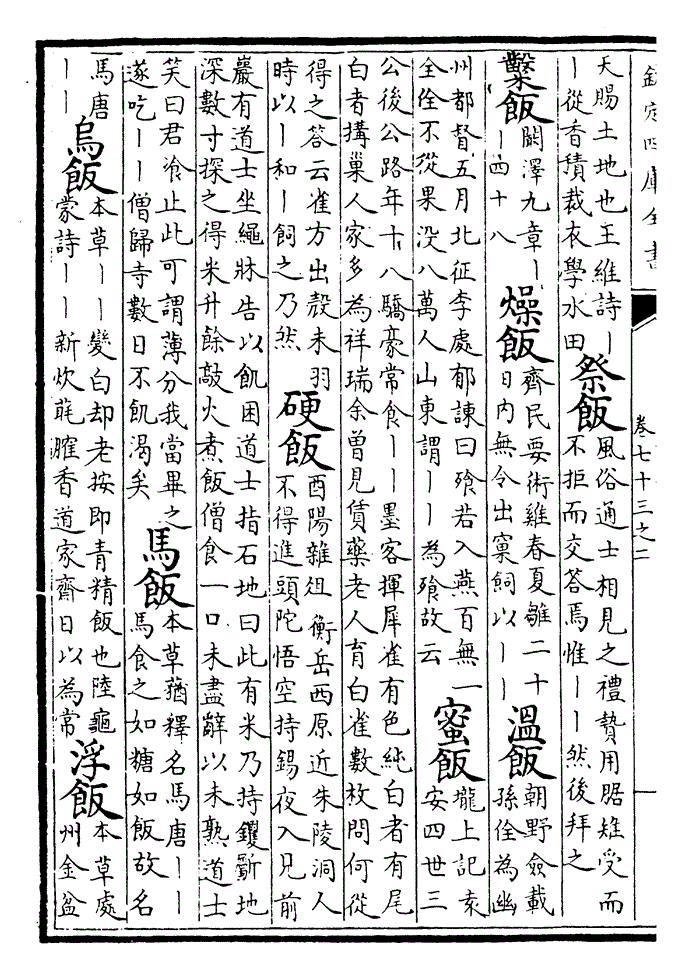 欽定四庫全書
卷七十三之二
天賜土地也王維詩丨
丨從香積裁衣學水田
祭飯
風俗通士相見之禮贄用腒雉受而
不拒而交答焉惟丨丨然後拜之
糳飯
闕澤九章丨
丨四十八
燥飯
齊民要術雞春夏雛二十
日内無令出窠飼以丨丨
溫飯
朝野僉載
孫佺為幽
州都督五月北征李處郁諫曰飱若入燕百無一
全佺不從果没八萬人山東謂丨丨為飱故云
蜜飯
攏上記袁
安四世三
公後公路年十八驕豪常食丨丨墨客揮犀雀有色純白者有尾
白者搆巢人家多為祥瑞余曾見賃藥老人育白雀數枚問何從
得之答云雀方出殼未羽
時以丨和丨飼之乃然
硬飯
酉陽雜俎衡岳西原近朱陵洞人
不得進頭陀悟空持錫夜入兕前
巖有道士坐繩牀告以飢困道士指石地曰此有米乃持钁斸地
深數寸探之得米升餘敲火煮飯僧食一口未盡辭以未熟道士
笑曰君飡止此可謂薄分我當畢之
遂吃丨丨僧歸寺數日不飢渴矣
馬飯
本草蕕釋名馬唐丨丨
馬食之如糖如飯故名
馬唐
丨丨
烏飯
本草丨丨變白却老按即青精飯也陸龜
蒙詩丨丨新炊芼臛香道家齋日以為常
浮飯
本草處
州金盆